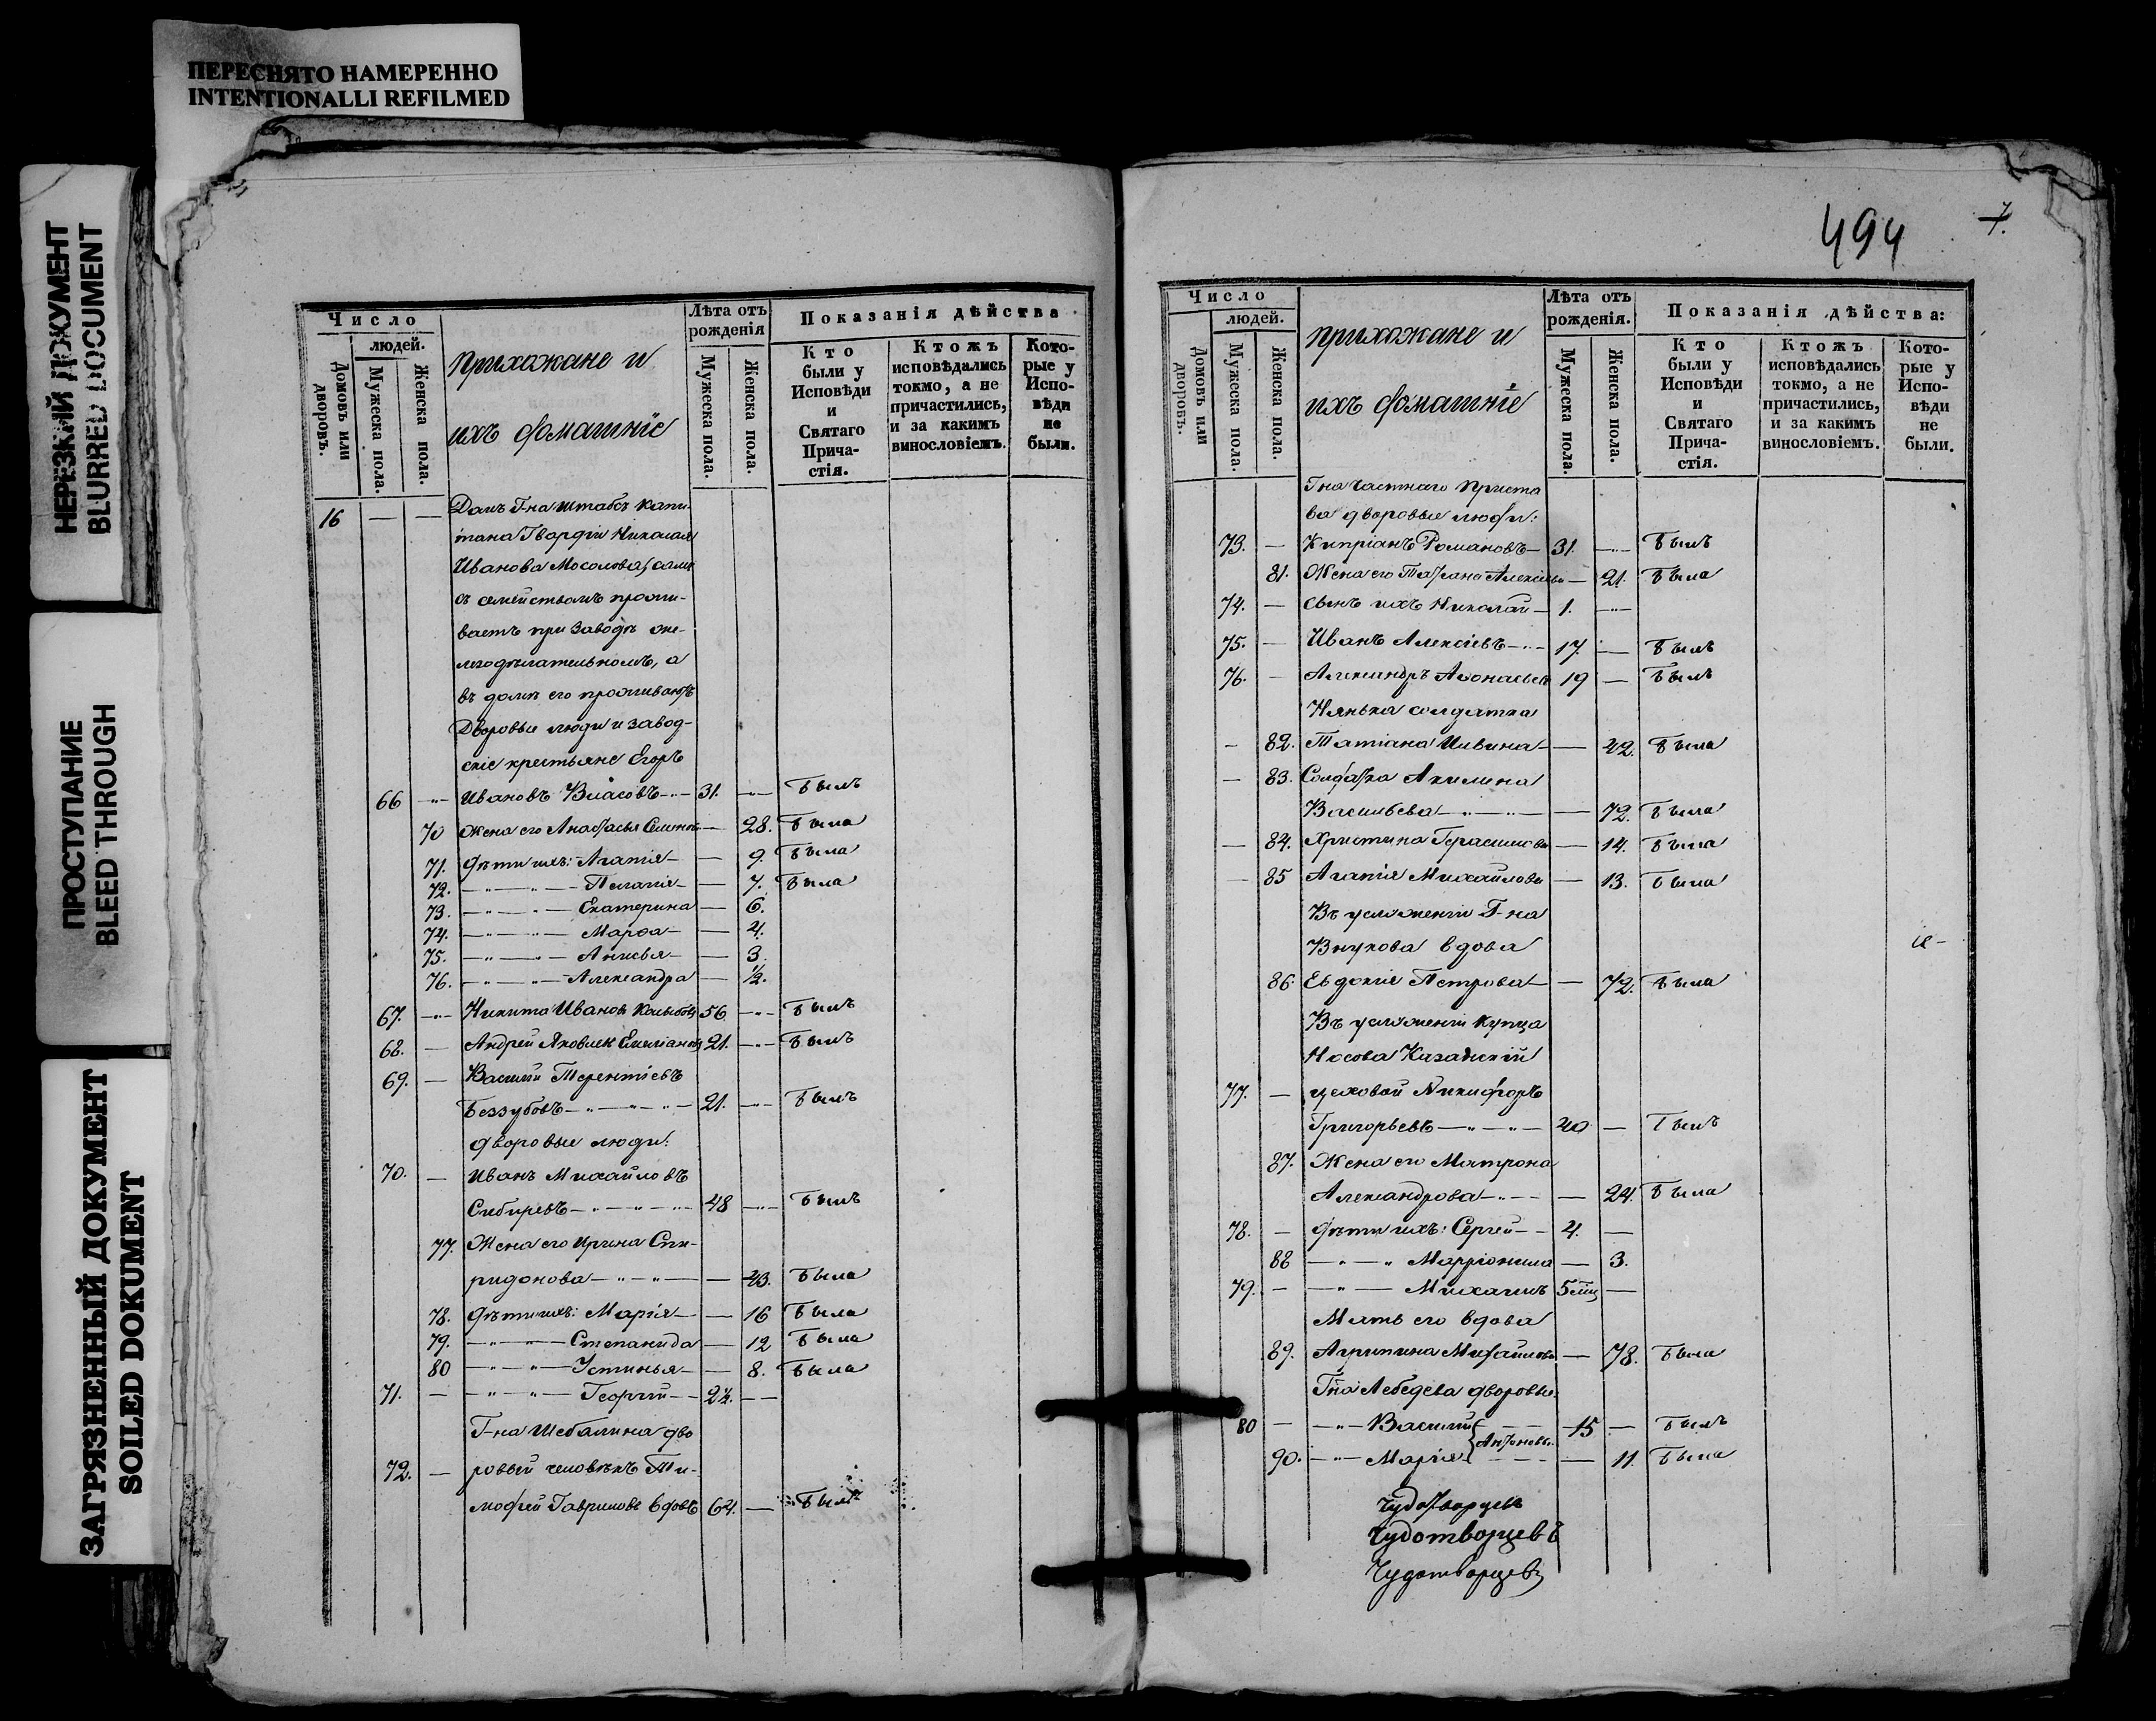 ПЕРЕСНЯТО НАМЕРЕННО
INTENTIONALLI REFILMED
НЕРЕЗКИЙ ДОКУМЕНТ
BLURRED DOCUMENT
ПРОСТУПАНИЕ
BLEED THROUGH
ЗАГРЯЗНЕННЫЙ ДОКУМЕНТ
SOILED DOKUMENT
Число
людей.
Домовъ или дворовъ.
Мужеска пола.
Женска пола.
прихожане и
ихъ домашніе
Лѣта отъ рожденія
Мужеска пола.
Женска пола.
Показанія дѣйства
Кто были у Исповѣди и Святаго Причастія.
Ктожъ исповѣдались токмо, а не причастились, и за какимъ винословіемъ.
Которые у Исповѣди не были.
16 — — Домъ Г-на Штабсъ Капи-
тана Гвардіи Николая
Иванова Мосолова, самъ
съ семействомъ прожи-
ваетъ при Заводѣ же-
лезодѣлательномъ, а
въ домѣ его проживаютъ
Дворовые люди и завод-
скіе крестьяне Егоръ
66 Ивановъ Власовъ 31. Былъ
70 Жена его Анастасья Семенова 28. Была
71. Дѣти ихъ: Агапія 9. Была
72. Пелагія 7. Была
73. Екатерина 6.
74. Марѳа 4.
75. Анисья 3.
76. Александра 1/2.
67. Никита Ивановъ 56 Былъ
68. Андрей Яковлевъ 21. Былъ
69. Василій Терентіевъ
Беззубовъ 21. Былъ
Дворовые люди:
70. Иванъ Михайловъ
Сибиревъ 48 Былъ
77. Жена его Ирина Спи-
ридонова 43. Была
78. Дѣти ихъ: Марія 16 Была
79. Степанида 12 Была
80 Устинья 8. Была
71. Георгій
Г-на Шебалина дво
72. ровый человѣкъ Ти-
мофей Гавриловъ вдовъ 64. Былъ
494
7.
Число
людей.
Домовъ или дворовъ.
Мужеска пола.
Женска пола.
прихожане и
ихъ домашніе
Лѣта отъ рожденія.
Мужеска пола.
Женска пола.
Показанія дѣйства:
Кто были у Исповѣди и Святаго Причастія.
Ктожъ исповѣдались токмо, а не причастились, и за какимъ винословіемъ.
Которые у Исповѣди не были.
Гна Частнаго Приста
ва дворовые люди:
73. — Кипріанъ Романовъ 31. Былъ
81. Жена его Татіана Алексіева 21. Была
74. — Сынъ ихъ Николай 1.
75. — Иванъ Алексіевъ 17. Былъ
76. — Александръ 19 — Былъ
Нянька солдатка
— 82. Татіана 42. Была
— 83. Солдатка Акилина
Васильева 72. Была
— 84. Христина Герасимова — 14. Была
— 85 Агапія Михайлова — 13. Была
Въ услуженіи Г-на
Внукова вдова
86. Евдокія Петрова — 72. Была
Въ услуженіи купца
Носова Казанскій
77. — цеховой Никифоръ
Григорьевъ 40 — Былъ
87. Жена его Матрона
Александрова — 24. Была
78. — Дѣти ихъ: Сергей 4. —
88 3.
79. — Михаилъ —
Мать его вдова
89. Агрипина Михайлова — 78. Была
Гна Лебедева дворовые
80 — Василій 15 — Былъ
Антоновы
90. Марія 11. Была
Чудотворцевъ
Чудотворцевъ
Чудотворцевъ